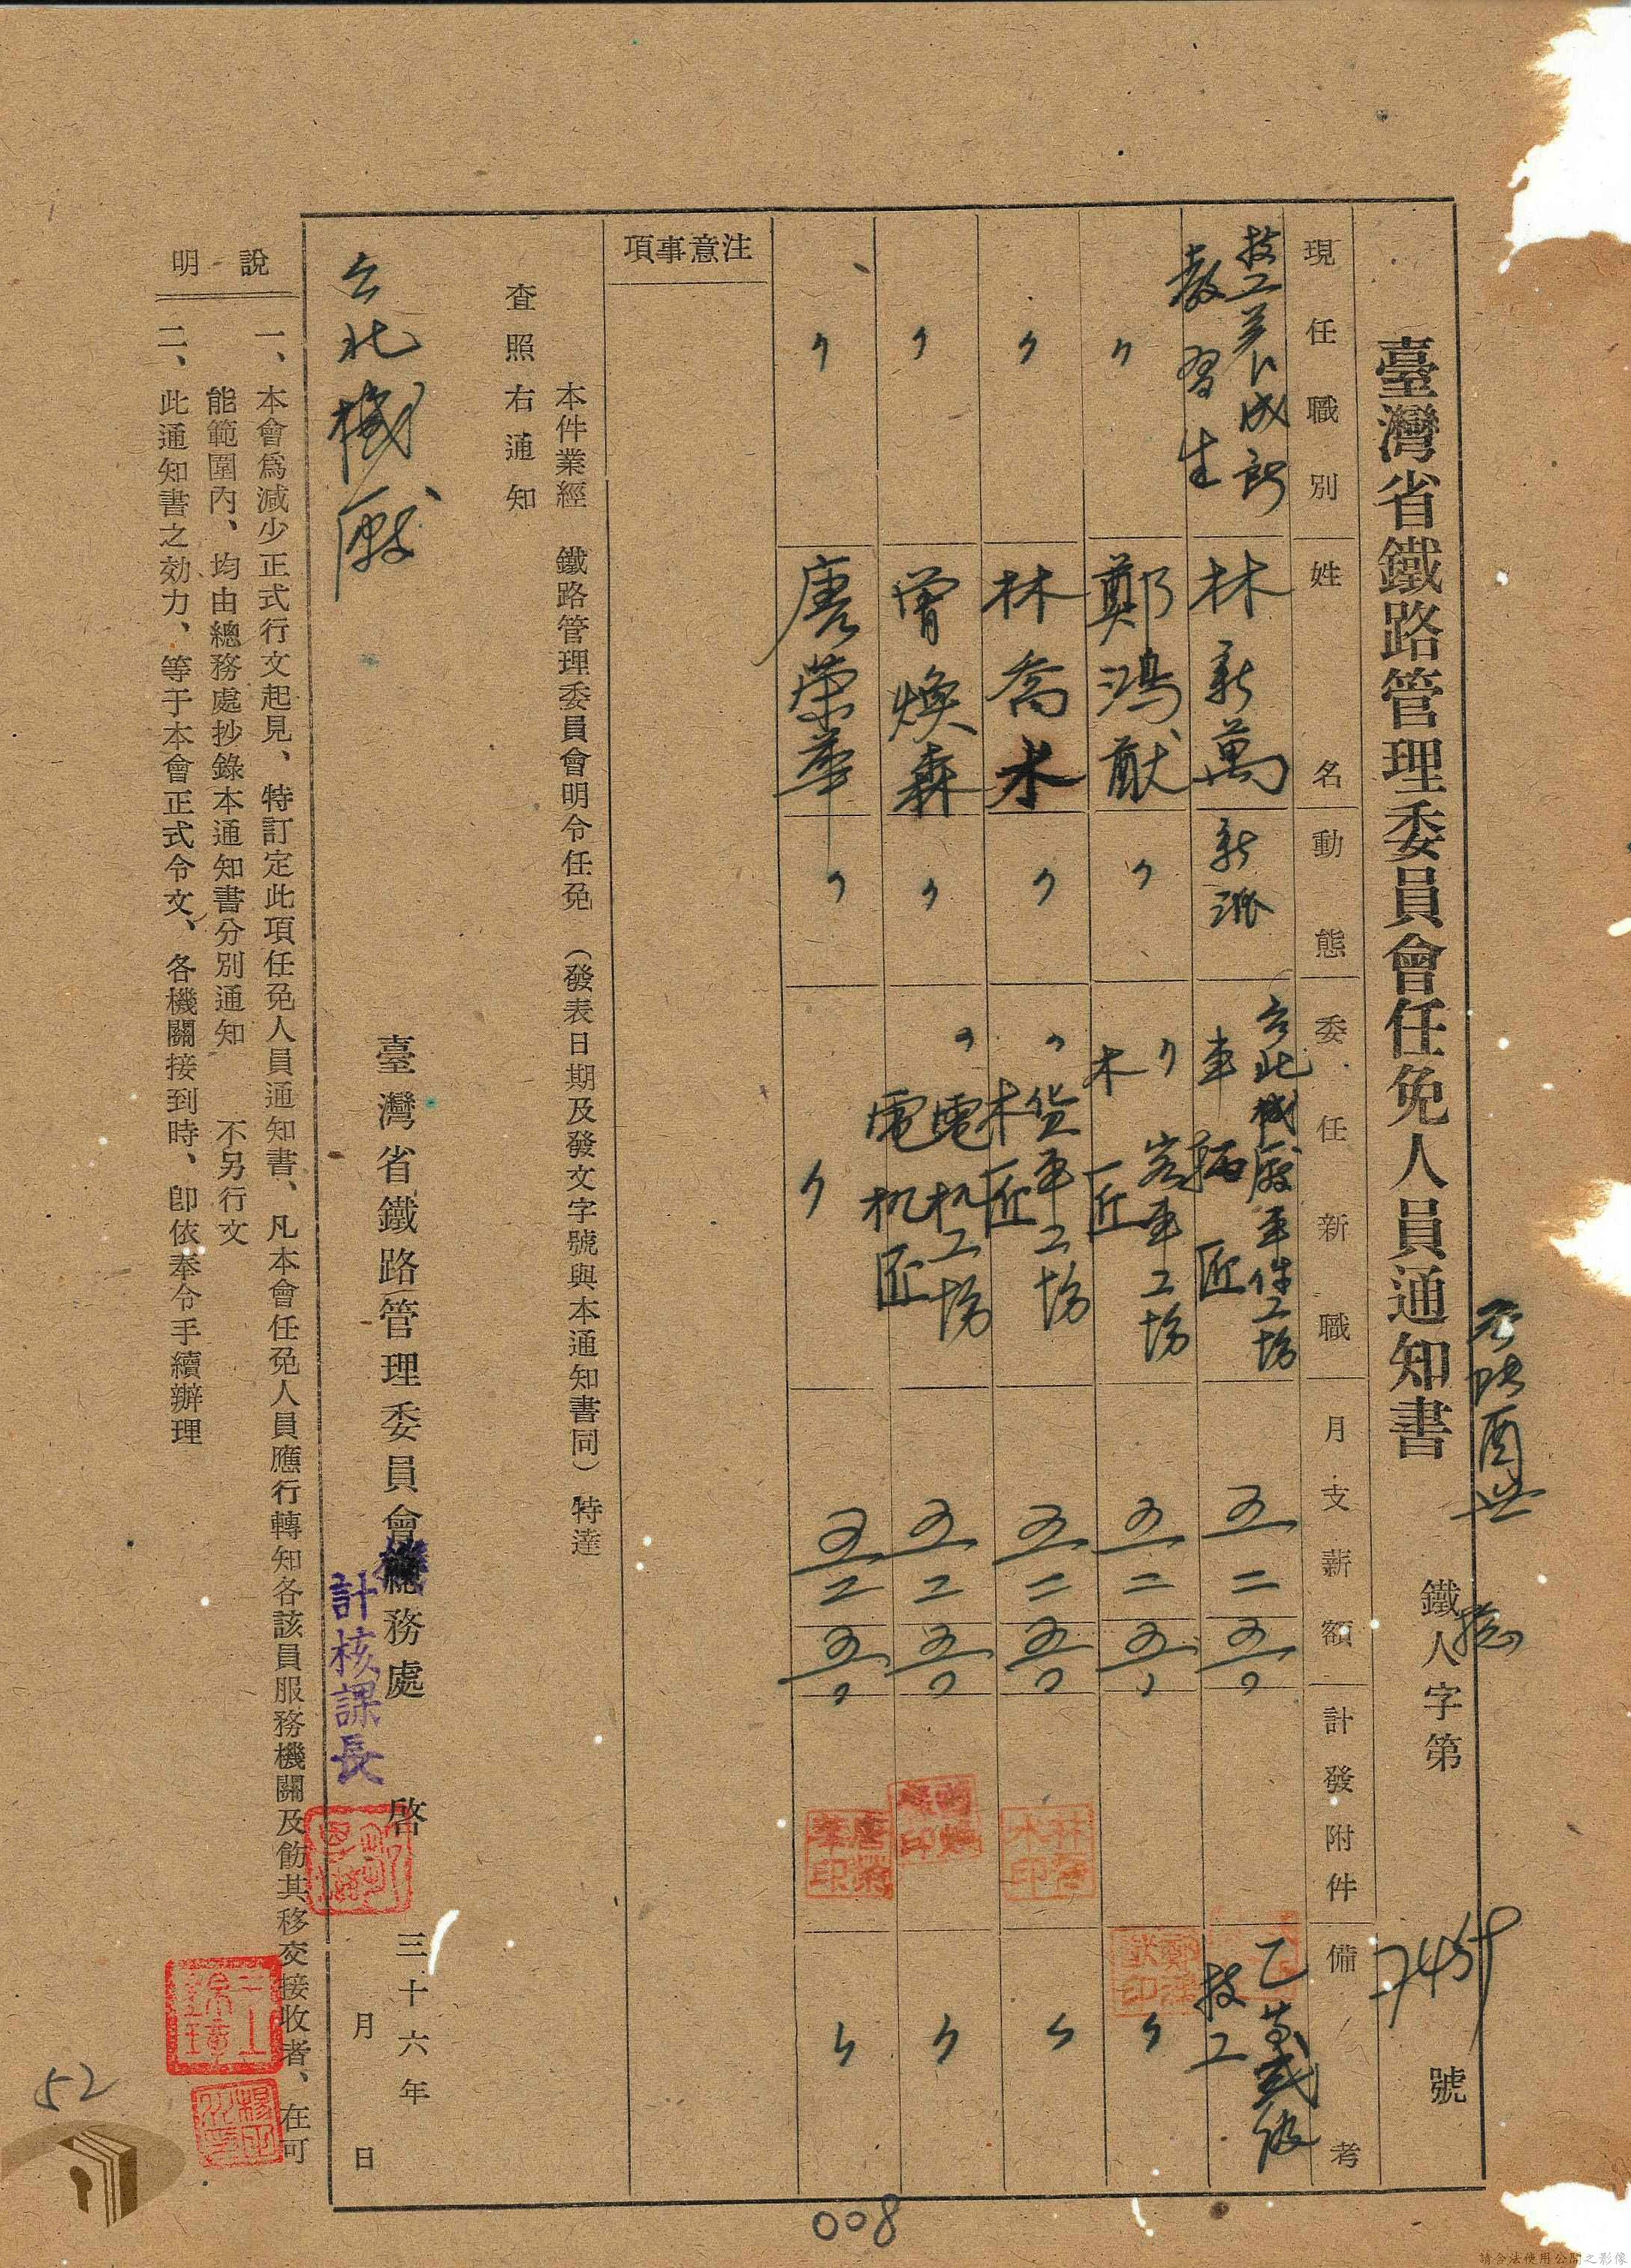 臺灣省鐵路管理委員會任免人員通知書
鐵人字第7459號
現任職別 姓名 動態 委任新職 月支薪額 計發附件 備考
技工養成所教習生 林新萬 新派 台北機廠車件工場車擴匠 五二五〇 乙黃貳級技工
〃 鄭鴻猷 〃 〃客車工場木匠 五二五〇 〃
〃 林喬木 〃 〃貨車工場木匠 五二五〇 〃
〃 曾煥森 〃 〃電机工場電机匠 五二五〇 〃
〃 唐榮華 〃 〃 五二五〇 〃
林喬木印
唐榮華印
注意事項
本件業經 鐵路管理委員會明令任免(發表日期及發文字號與本通知書同)特達
查照右通知
台北機廠
臺灣省鐵路管理委員會總務處 啓
機
計核課長
三十六年 月 日
說明
一、本會爲減少正式行文起見、特訂定此項任免人員通知書、凡本會任免人員應行轉知各該員服務機關及飭其移交接收者、在可
能範圍內、均由總務處抄錄本通知書分別通知 不另行文
二、此通知書之効力、等于本會正式令文、各機關接到時、卽依奉令手續辦理
52
008
請合法使用公開之影像